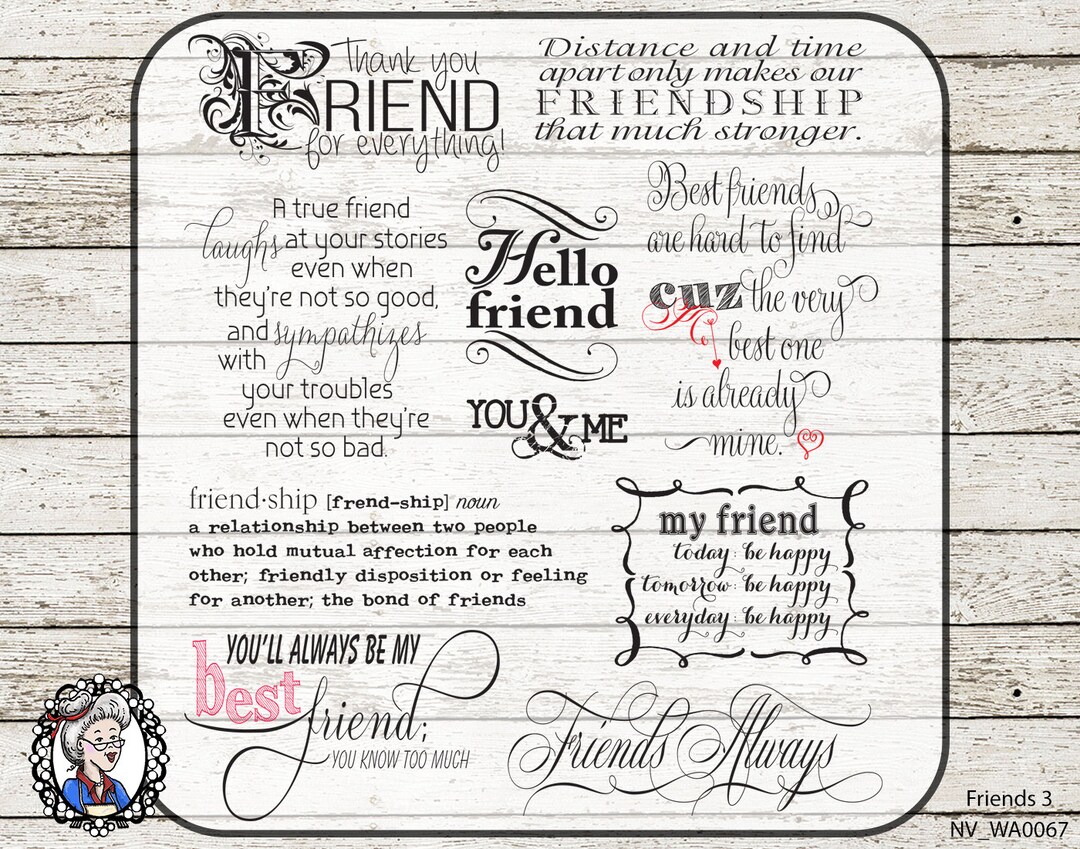 Thank you
FRIEND
for everything!
Distance and time
apart only makes our
FRIENDSHIP
that much stronger.
A true friend
laughs at your stories
even when
they're not so good,
and sympathizes
with
your troubles
even when they're
not so bad.
Hello
friend
YOU & ME
Best friends
are hard to find
cuz the very
best one
is already
mine.
friend·ship [frend-ship] noun
a relationship between two people
who hold mutual affection for each
other; friendly disposition or feeling
for another; the bond of friends
my friend
today: be happy
tomorrow: be happy
everyday: be happy
YOU'LL ALWAYS BE MY
best
friend;
YOU KNOW TOO MUCH
Friends Always
Friends 3
NV_WA0067